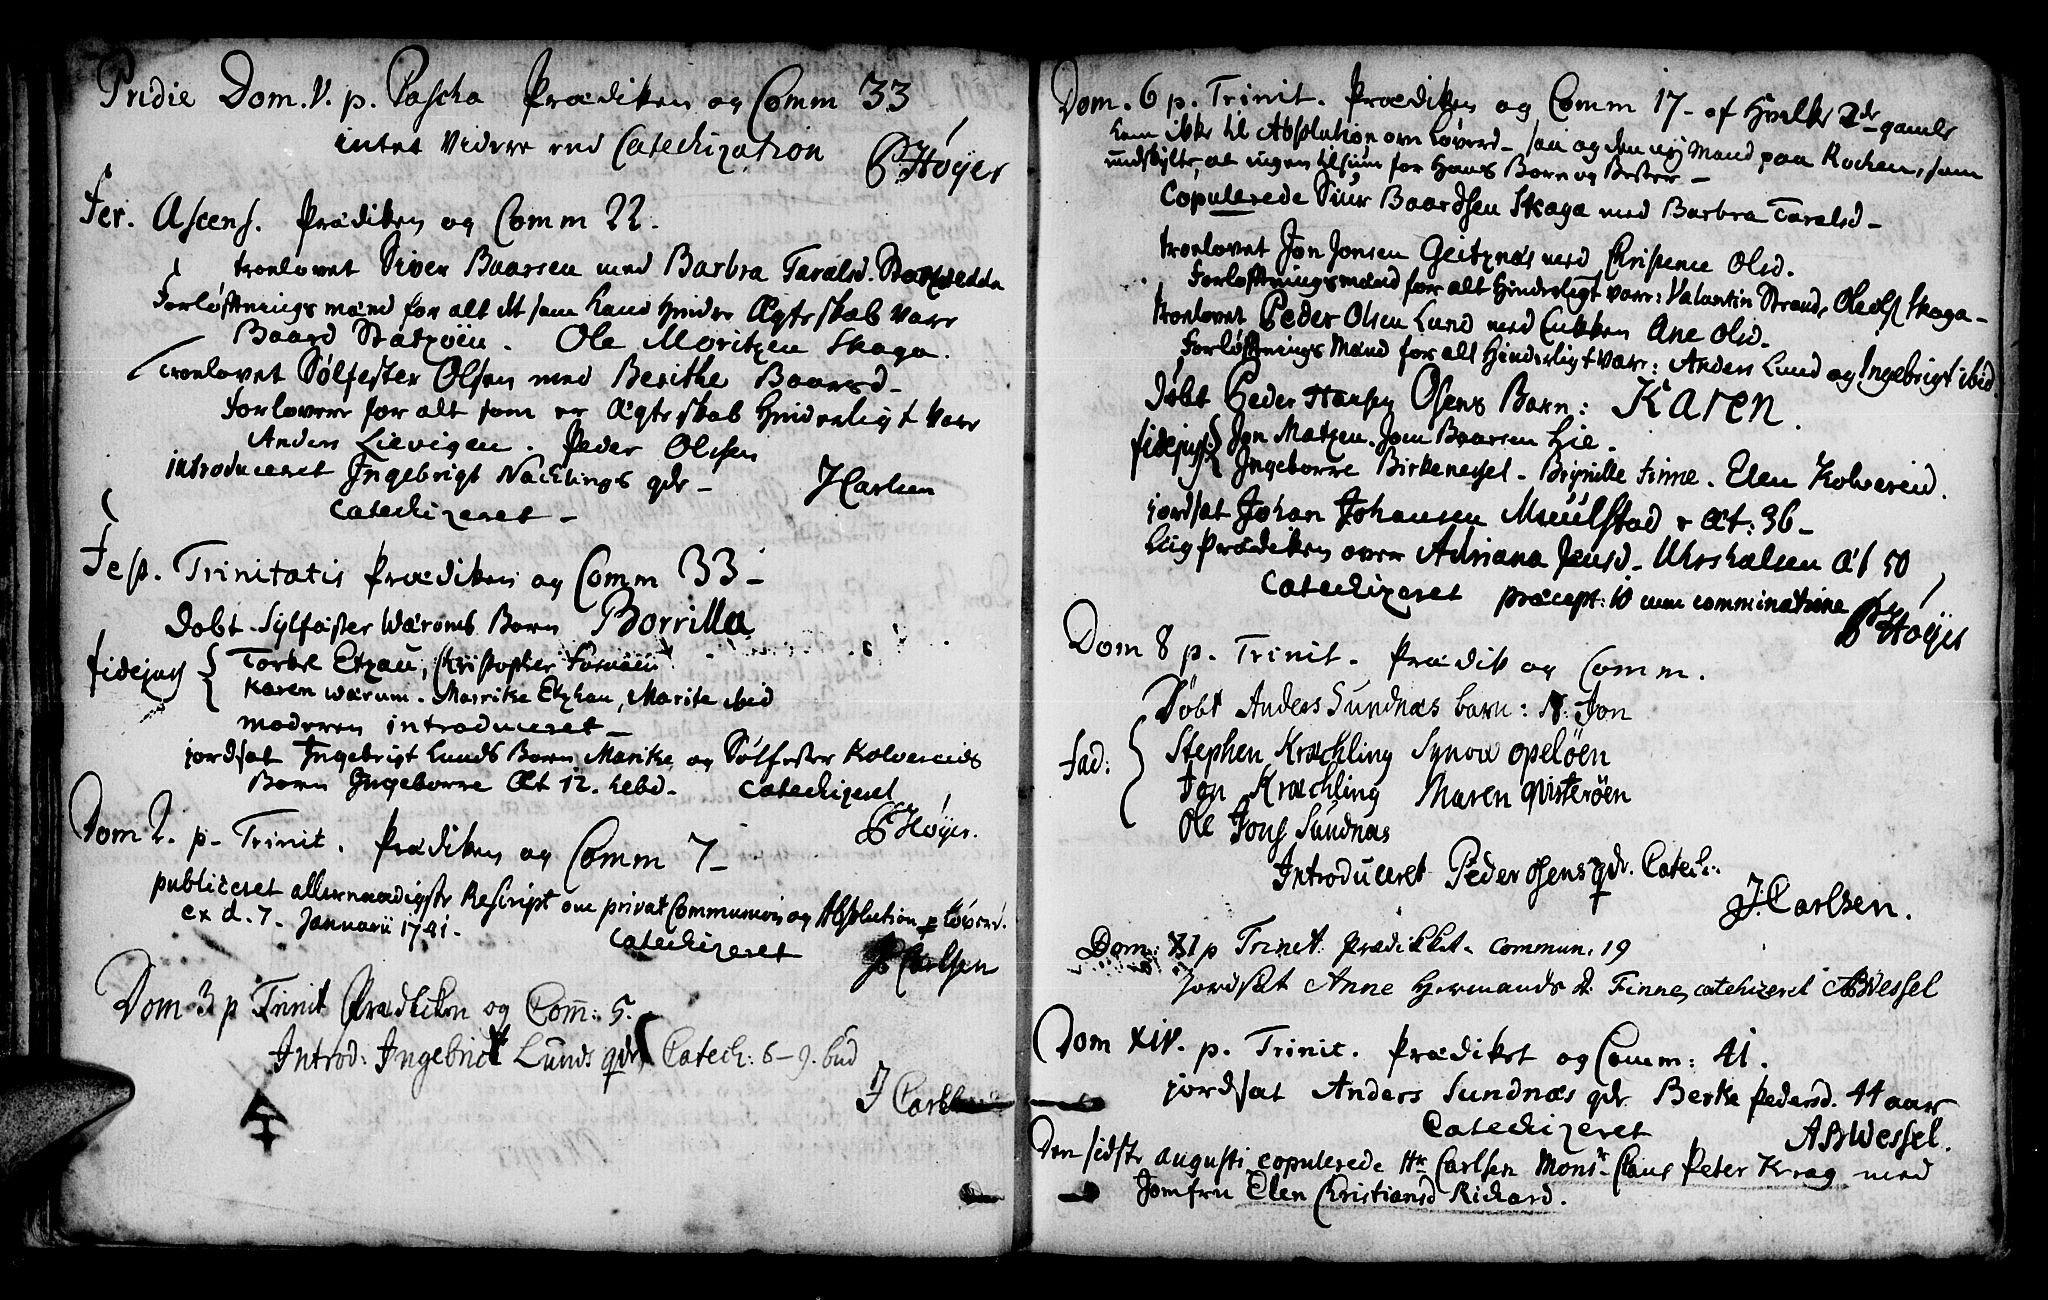 Pridie Dom. V. p. Pascha Prædiken og Comm 33
intet videre end Catechization
P Høyer
Fer. Ascens. Prædiken og Comm 22.
troelovet Siver Baarsen med Barbra Taralsd.
Forløftnings mænd for alt det som kand hindre Ægteskab vare
Baard Statzöen. Ole Moritzen Skaga.
Troelovet Sölfester Olsen med Berithe Baarsd.
Forlovere for alt som er Ægteskab hinderligt vare
Anders Lievigen. Peder Olssen
introduceret Ingebrigt Nachlings qdr
J Carlsen
Catechizeret
Fest. Trinitatis Prædiken og Comm 33
Döbt Sylfæster Wæroms Barn Borrilla
fidejuss Torkel Etzau, Christopher
Karen Wærum. Marrike Etzhau, Marite ibid
moderen introduceret
jordsat Ingebrigt Lunds Barn Marike og Sölfester Kolvereids
Barn Ingeborre Æt 12. hebd. Catechizeret
P Høyer.
Dom 2. p. Trinit. Prædiken og Comm 7
publiceret allernaadigste Rescript om privat Communion og Absolution
ex d. 7. Januarii 1741.
Catechizeret
J Carlsen
Dom 3 p Trinit Prædiken og Com: 5.
Introd: Ingebrict Lunds qdr, Catech: 6-9. bud
J Carlsen
Dom. 6 p. Trinit. Prædiken og Comm 17 af hvilke 2de gamle
kom ikke til Absolution om Löverd. saa og den nye Mand paa Kochen, som
undskylte, at ingen tilsium for hans Barn og Bester
Copulerede Siur Baardsen Skaga med Barbra Taralsd
troelovet Jon Jonsen Geitznæs med Christence Olsd.
Forløftningsmænd for alt hinderligt vare: Valentin Strand, Ole Olss Skaga
troelovet Peder Olsen Lund med Enkken Ane Olsd.
Forløftnings Mænd for alt hinderligt vare: Anders Lund og Ingebrigt ibid
Döbt Peder Hansen Osens Barn: Karen.
fidejuss: Jon Matzen. Jon Baarsen Lie.
Ingeborre Birkenessel. Brynille Finne. Elen Kolvereid.
jordsat Johan Johansen Muulstad Æt: 36
Liig Prædiken over Adriana Jensd. Æt 50
Catechizeret præcept: 10 cum comminatione
P Høyer
Dom 8 p. Trinit. Prædik og Comm.
Döbt Anders Sundnæs barn: N: Jon
Fad: Stephen Kræchling Synow opelöen
Jon Kræchling Maren qvisteröen
Ole Jons Sundnæs
Introduceret Peder Osens qdr. Catech:
J: Carlsen.
Dom: XI p Trinit: Prædikket. commun. 19
Jordsat Anne Hermands d. Finne, catechizeret ABWessel
Dom XIV. p. Trinit. Prædiket og Comm: 41.
jordsat Anders Sundnæs qdr Berke Pedersd. 44 aar
Catechizeret ABWessel.
Den sidste augusti copulerede Hr Carlsen Monsr Claus Peter Krag med
Jomfru Elen Christiansd Richard.